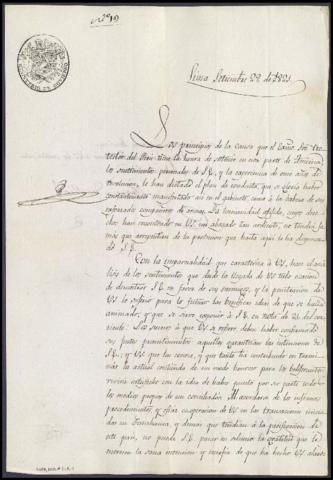 nº 19
Lima Setiembre 29 de 1821
Los principios de la causa que el Exmo Sor Pro-
tector del Perú tiene la honra de sostener en esta parte de America,
los sentimientos personales de S.E. y la experiencia de once años de
revolucion, le han dictado el plan de conducta que se gloría haber
constantemente manifestado en el gabinete, como á la cabeza de sus
esforzados compañeros de armas. La humanidad afligida, cuyos dere-
chos han encontrado en VS. un abogado tan ardiente, no tendrá ja-
mas que arrepentirse de la proteccion que hasta aqui le ha dispensa-
do S.E.
Con la imparcialidad que caracteriza á VS. hace el aná-
lisis de los sentimientos que desde la llegada de VS. tubo ocasion
de demostrar S.E. en favor de sus enemigos, y la penetracion de VS.
lo sugiere para lo futuro las beneficas ideas de que se halla
animado, y que se sirve exponer á S.E. en nota de 21 del cor-
riente. Los sucesos á que VS. se refiere deben haber confirmado
sus justos presentimientos: aquellos garantizan las intenciones de
S.E.; y VS. que las conoce, y que tanto ha contribuido en termi-
nar la actual contienda de un modo honroso para los beligerantes
vivirá satisfecho con la idea de haber puesto por su parte todos
los medios propios de un conciliador. Al acordarse de los infinitos
procedimientos, y eficaz cooperacion de VS. en las transacciones inicia-
das en Punchauca, y demas que tendian á la pacificacion de
este pais, no puede S.E. pasar en silencio la gratitud que le
merecen la sana intencion y energía de que ha hecho VS. alarde